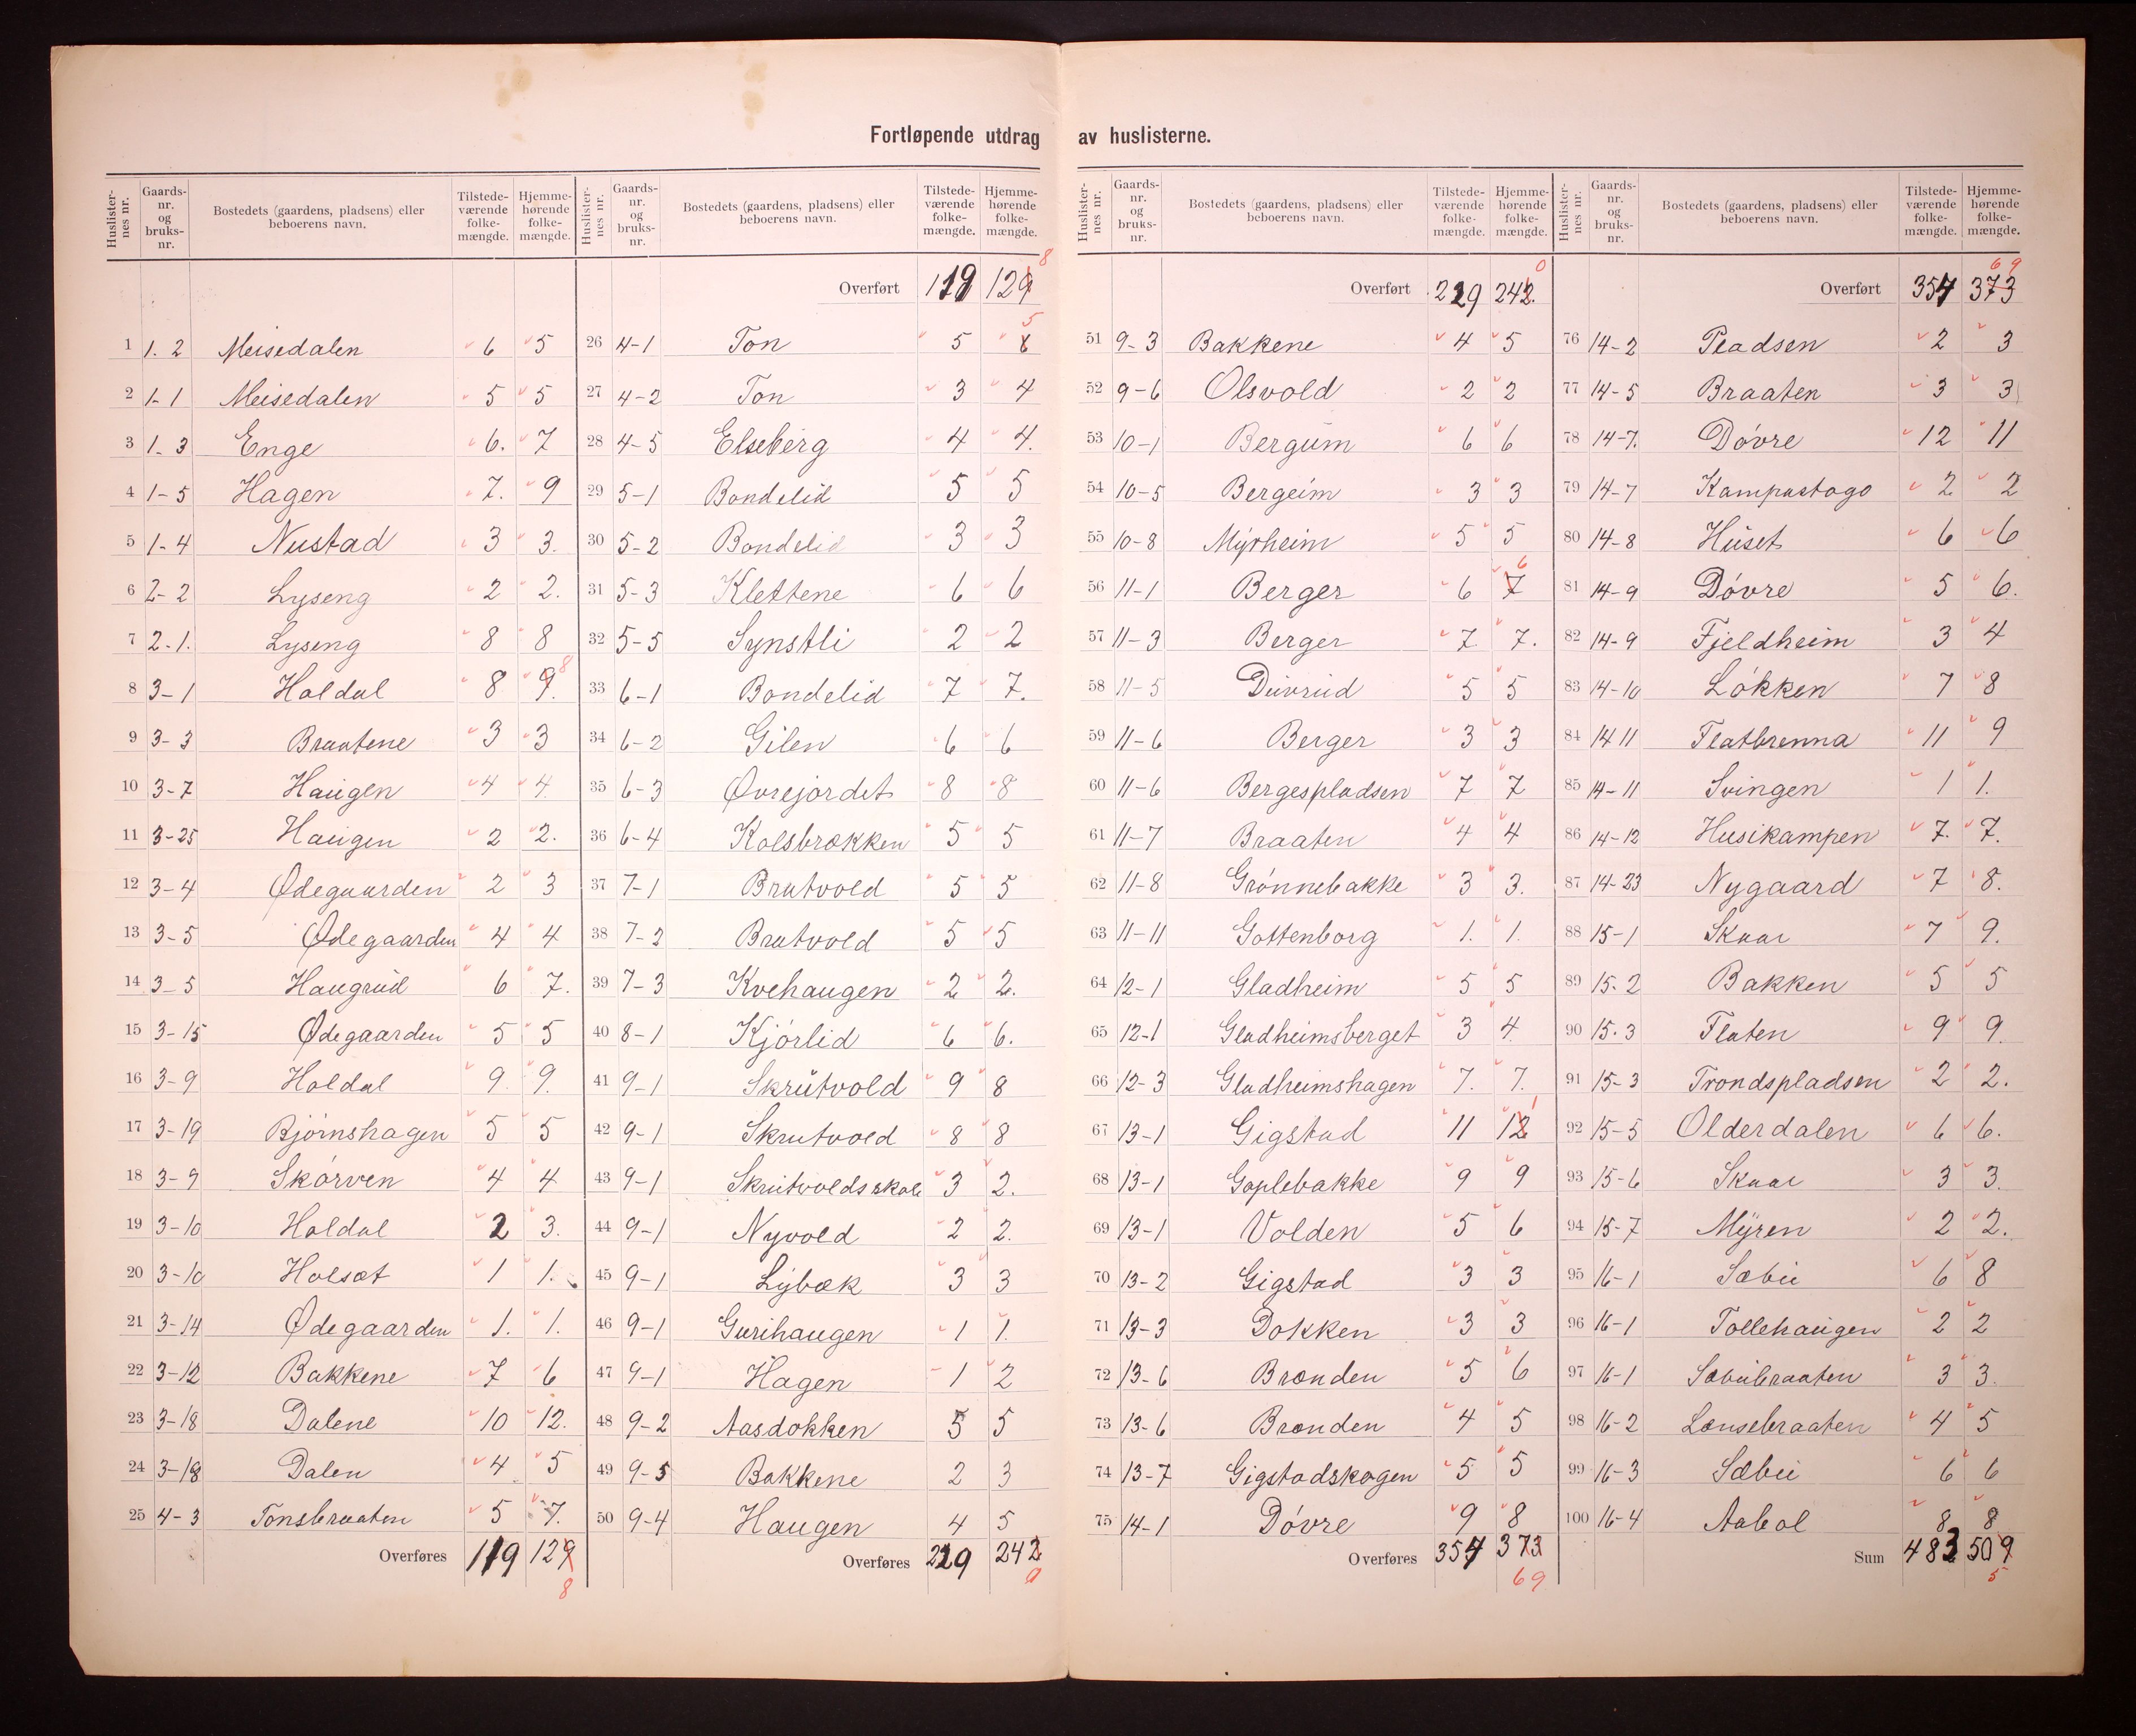 Fortløpende utdrag av huslisterne.
Huslisternes nr. Gaardsnr. og bruksnr. Bostedets (gaardens, pladsens) eller beboerens navn. Tilstedeværende folkemængde. Hjemmehørende folkemængde.
1 1. 2 Meisedalen 6 5
2 1-1 Meisedalen 5 5
3 1-3 Enge 6. 7
4 1-5 Hagen 7. 9
5 1-4 Nustad 3 3.
6 2-2 Lyseng 2 2.
7 2-1. Lyseng 8 8
8 3-1 Holdal 8 9. 8
9 3-3 Braatene 3 3
10 3-7 Haugen 4 4
11 3-25 Haugen 2 2.
12 3-4 Ødegaarden 2 3
13 3-5 Ødegaarden 4 4
14 3-5 Haugrud 6 7.
15 3-15 Ødegaarden 5 5
16 3-9 Holdal 9 9.
17 3-19 Bjørnshagen 5 5
18 3-9 Skørven 4 4
19 3-10 Holdal 2 3.
20 3-10 Holsæt 1 1.
21 3-14 Ødegaarden 1. 1.
22 3-12 Bakkene 7 6
23 3-18 Dalene 10 12.
24 3-18 Dalen 4 5
25 4-3 Tonsbraaten 5 7.
Overføres 119 129 8
Huslisternes nr. Gaardsnr. og bruksnr. Bostedets (gaardens, pladsens) eller beboerens navn. Tilstedeværende folkemængde. Hjemmehørende folkemængde.
Overført 119 129 8
26 4-1 Ton 5 6 5
27 4-2 Ton 3 4
28 4-5 Elseberg 4 4.
29 5-1 Bondelid 5 5
30 5-2 Bondelid 3 3
31 5-3 Klettene 6 6
32 5-5 Synstli 2 2
33 6-1 Bondelid 7 7.
34 6-2 Gilen 6 6
35 6-3 Øvrejordet 8 8
36 6-4 Kolsbrækken 5 5
37 7-1 Brutvold 5 5
38 7-2 Brutvold 5 5
39 7-3 Kvehaugen 2 2.
40 8-1 Kjørlid 6 6.
41 9-1 Skrutvold 9 8
42 9-1 Skrutvold 8 8
43 9-1 Skrutvolds skole 3 2.
44 9-1 Nyvold 2 2.
45 9-1 Lybæk 3 3
46 9-1 Gurihaugen 1 1.
47 9-1 Hagen 1 2
48 9-2 Aasdokken 5 5
49 9-5 Bakkene 2 3
50 9-4 Haugen 4 5
Overføres 229 242 0
Huslisternes nr. Gaardsnr. og bruksnr. Bostedets (gaardens, pladsens) eller beboerens navn. Tilstedeværende folkemængde. Hjemmehørende folkemængde.
Overført 229 242. 0
51 9-3 Bakkene 4 5
52 9-6 Olsvold 2 2
53 10-1 Bergum 6 6
54 10-5 Bergeim 3 3
55 10-8 Myrheim 5 5
56 11-1 Berger 6 7 6
57 11-3 Berger 7 7.
58 11-5 Duvrud 5 5
59 11-6 Berger 3 3
60 11-6 Bergespladsen 7 7
61 11-7 Braaten 4 4
62 11-8 Grønnebakke 3 3.
63 11-11 Gottenborg 1. 1.
64 12-1 Gladheim 5 5
65 12-1 Gladheimsberget 3 4
66 12-3 Gladheimshagen 7. 7.
67 13-1 Gigstad 11 12 1
68 13-1 Goplebakke 9 9
69 13-1 Volden 5 6
70 13-2 Gigstad 3 3
71 13-3 Dokken 3 3
72 13-6 Brænden 5 6
73 13-6 Brænden 4 5
74 13-7 Gigstadskogen 5 5
75 14-1 Døvre 9 8
Overføres 354 373 69
Huslisternes nr. Gaardsnr. og bruksnr. Bostedets (gaardens, pladsens) eller beboerens navn. Tilstedeværende folkemængde. Hjemmehørende folkemængde.
Overført 354 373 69
76 14-2 Pladsen 2 3
77 14-5 Braaten 3 3
78 14-7. Døvre 12 11
79 14-7 Kampestogo 2 2
80 14-8 Huset 6 6
81 14-9 Døvre 5 6.
82 14-9 Fjeldheim 3 4
83 14-10 Løkken 7 8
84 14 11 Flatbrenna 11 9
85 14-11 Svingen 1 1.
86 14-12 Husikampen 7. 7.
87 14-23 Nygaard 7 8.
88 15-1 Skaar 7 9.
89 15.2 Bakken 5 5
90 15.3 Flaten 9 9.
91 15-3 Trondspladsen 2 2.
92 15-5 Olderdalen 6 6.
93 15-6 Skaar 3 3.
94 15-7 Myren 2 2.
95 16-1 Sæbu 6 8
96 16-1 Tollehaugen 2 2
97 16-1 Sæbubraaten 3 3.
98 16-2 Lænsebraaten 4 5
99 16-3 Sæbu 6 6
100 16-4 Aabol 8 8
Sum 483 509 5